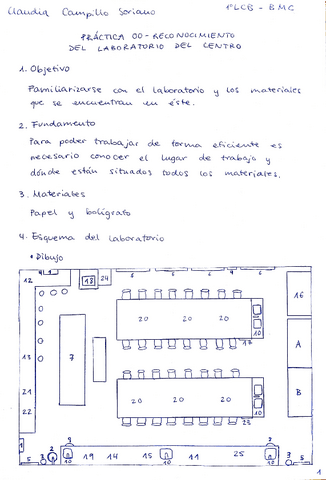 Claudia Campillo Soriano
1º LCB - BMC
PRÁCTICA 00 - RECONOCIMIENTO
DEL LABORATORIO DEL CENTRO
1. Objetivo
Familiarizarse con el laboratorio y los materiales
que se encuentran en éste.
2. Fundamento
Para poder trabajar de forma eficiente es
necesario conocer el lugar de trabajo y
dónde están situados todos los materiales.
3. Materiales
Papel y bolígrafo
4. Esquema del laboratorio
• Dibujo
12
18
24
16
20 20 20
10
17
13
7
A
21
22
B
20 20 20
10
23
5
3
2
9
10
19
14
15
10
11
25
10
3
5
1